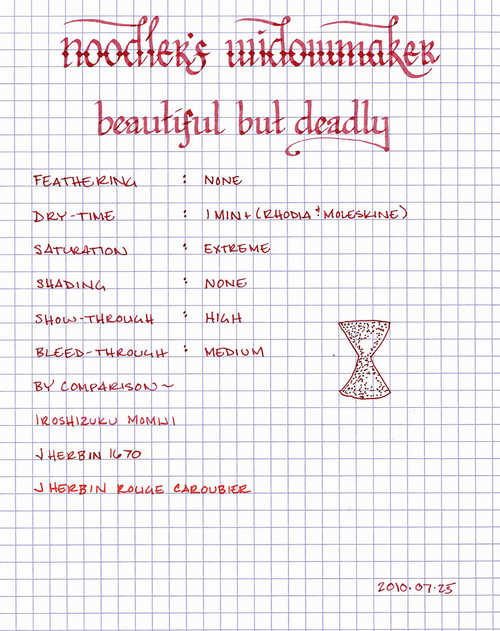 noodler's widowmaker
beautiful but deadly
FEATHERING : NONE
DRY-TIME : 1 MIN+ (RHODIA & MOLESKINE)
SATURATION : EXTREME
SHADING : NONE
SHOW-THROUGH : HIGH
BLEED-THROUGH : MEDIUM
BY COMPARISON~
IROSHIZUKU MOMIJI
J HERBIN 1670
J HERBIN ROUGE CAROUBIER
2010.07.25